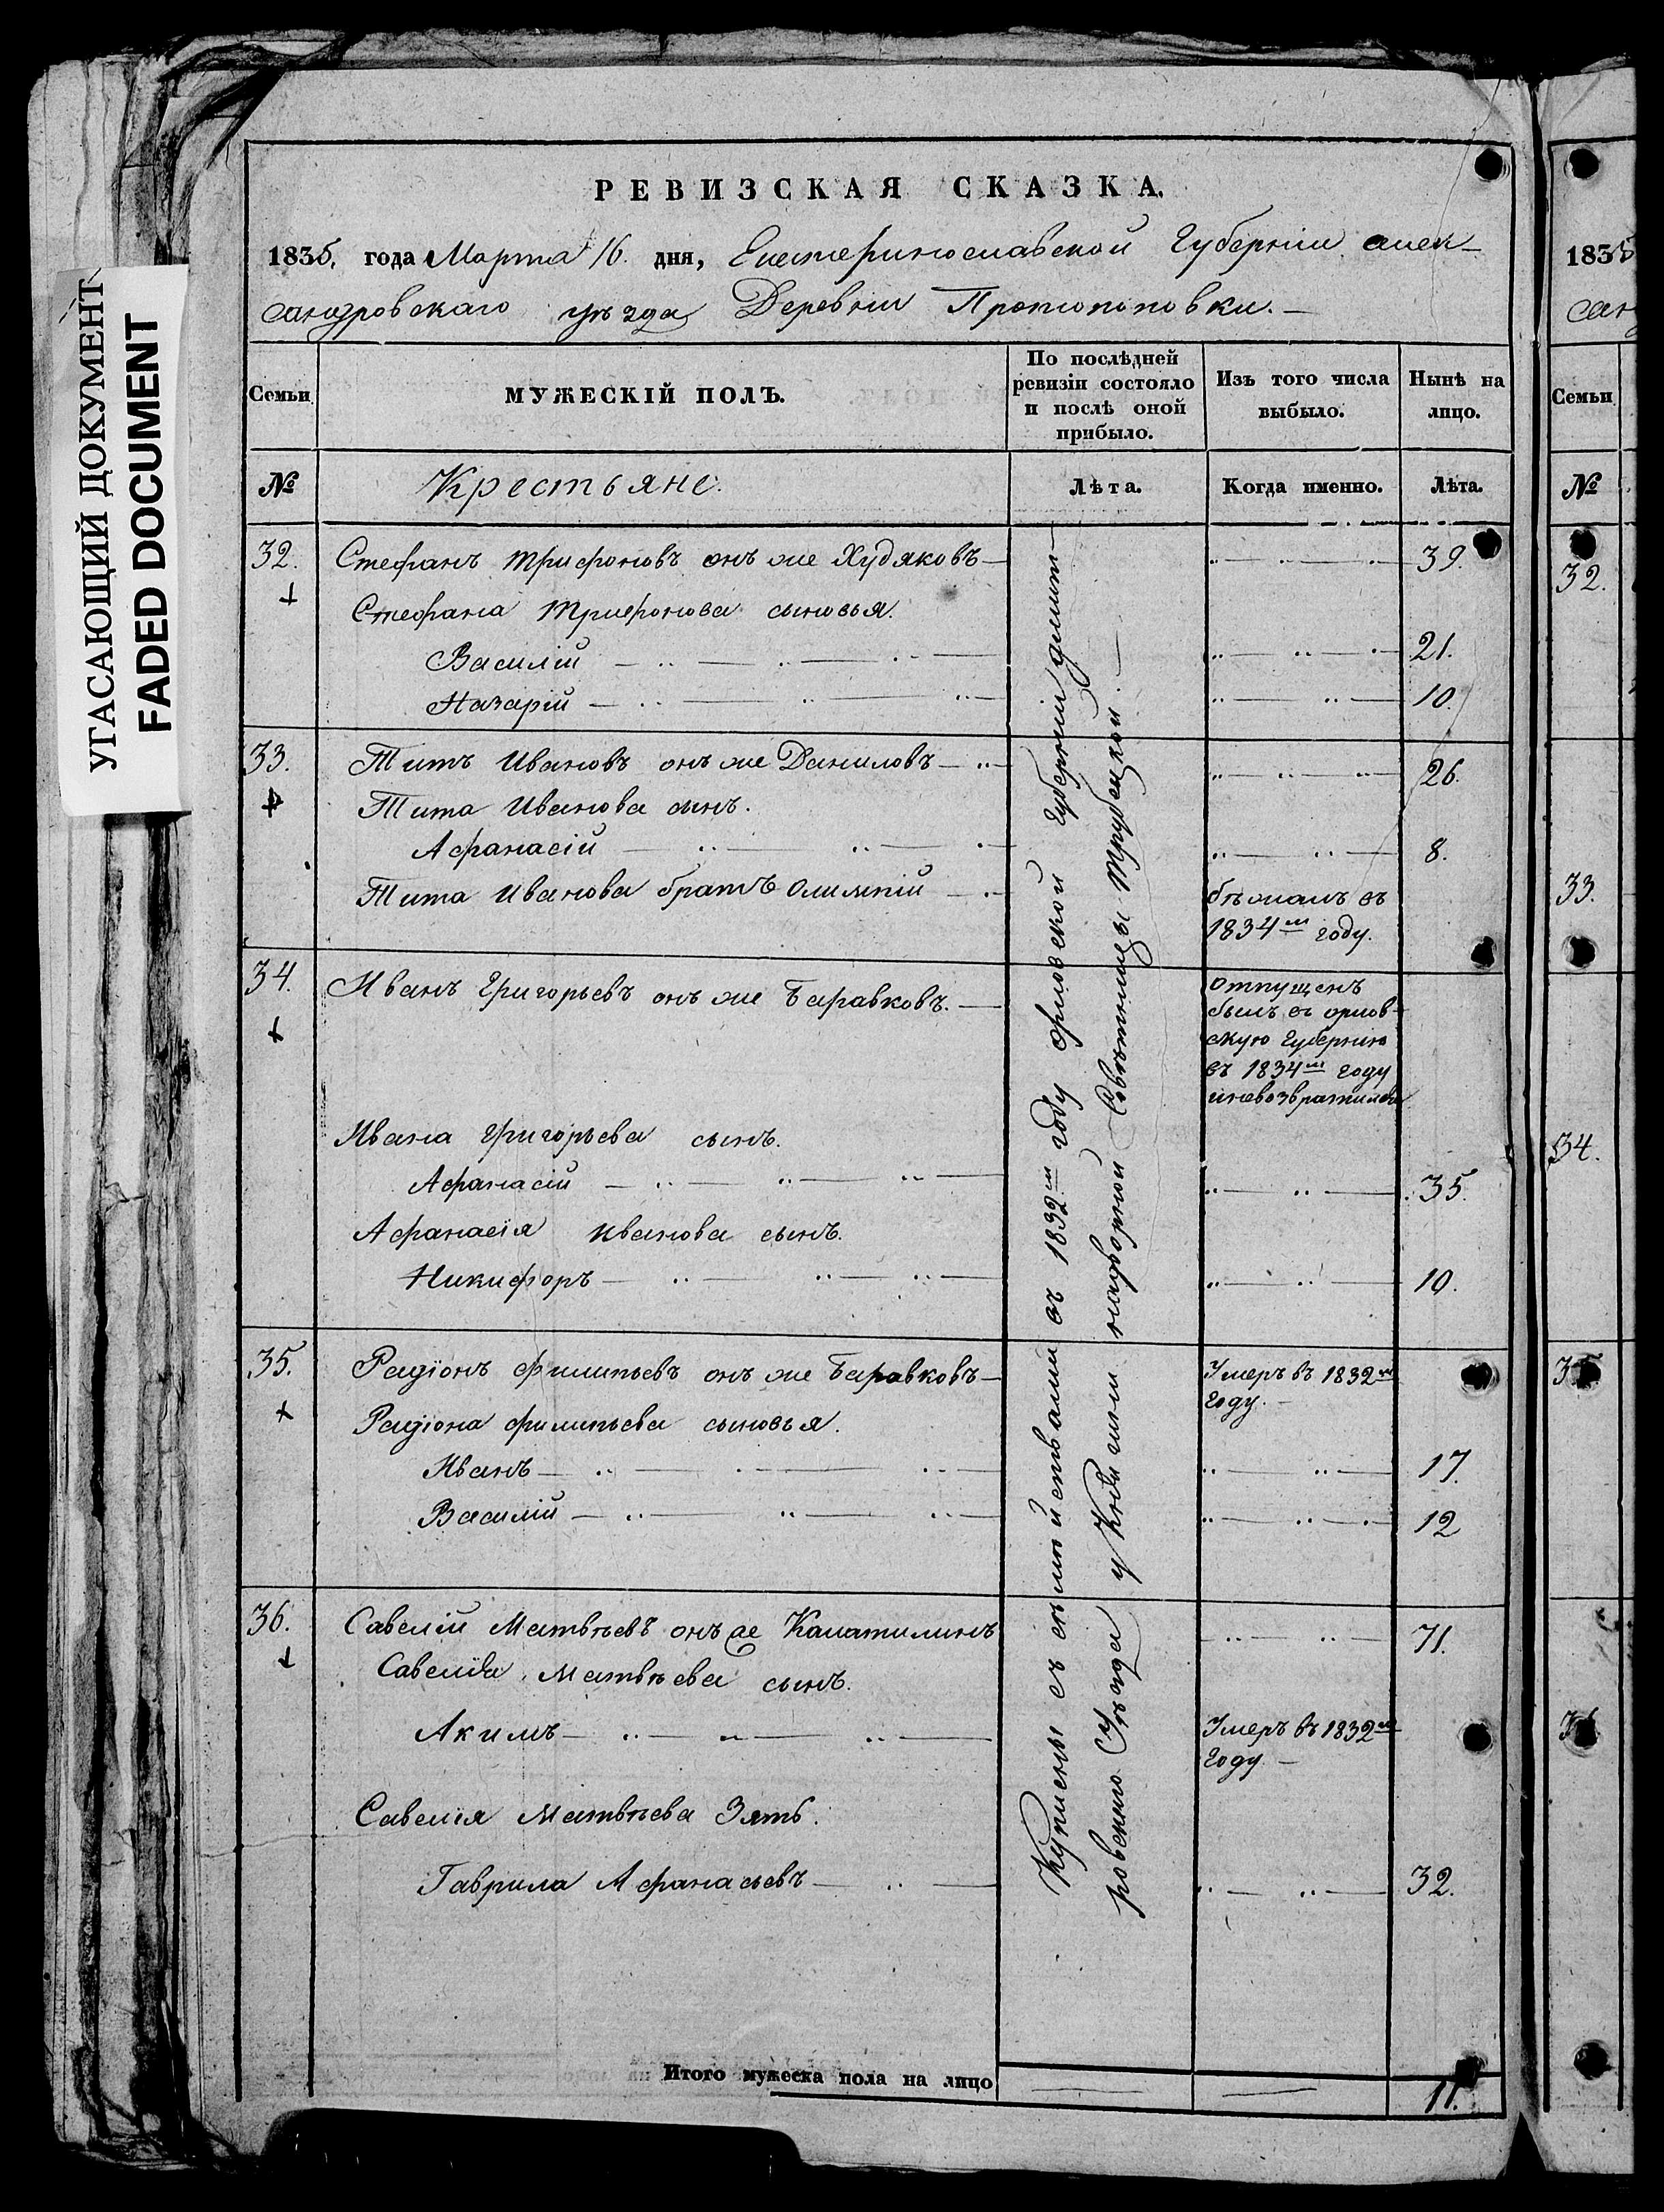 УГАСАЮЩИЙ ДОКУМЕНТ
FADED DOCUMENT
РЕВИЗСКАЯ СКАЗКА.
1835, года Марта 16. дня, Екатеринославской Губерніи алек-
сандровскаго уѣзда Деревни Протопоповки. —
Семьи
МУЖЕСКІЙ ПОЛЪ.
По послѣдней
ревизіи состояло
и послѣ оной
прибыло.
Изъ того числа
выбыло.
Нынѣ на
лицо.
№
Крестьяне.
Лѣта.
Когда именно.
Лѣта.
32. Стефанъ Трифоновъ онъ же Худяковъ — 39.
Стефана Трифонова сыновья.
Василій — 21.
Назарій — 10.
33. Титъ Ивановъ онъ же Даниловъ — 26.
Тита Иванова сынъ.
Афанасій — 8.
Тита Иванова братъ Олимпій — бѣжалъ въ
1834м году.
34. Иванъ Григорьевъ онъ же Баравковъ. — отпущенъ
былъ въ орлов-
скую Губернію
въ 1834м году
иневозвратился
Ивана Григорьева сынъ.
Афанасій — 35.
Афанасія Иванова сынъ.
Никифоръ — 10.
35. Радіонъ филипьевъ онъ же Баравковъ — Умеръ въ 1832м
году. —
Радіона филипьева сыновья.
Иванъ — 17.
Василій — 12
36. Савелій Матвѣевъ онъ же Калатилинъ 71.
Савелія Матвѣева сынъ.
Акимъ — Умеръ въ 1832м
году. —
Савелія Матвѣева Зять.
Гаврила Афанасьевъ — 32.
Куплены съ семействами въ 1832м году орловской Губерніи дмит-
ровскаго Уѣзда у Княгини надворной Совѣтницы Трубецкой. —
Итого мужеска пола на лицо
11.
1835
сан
Семьи
№
32.
33.
34.